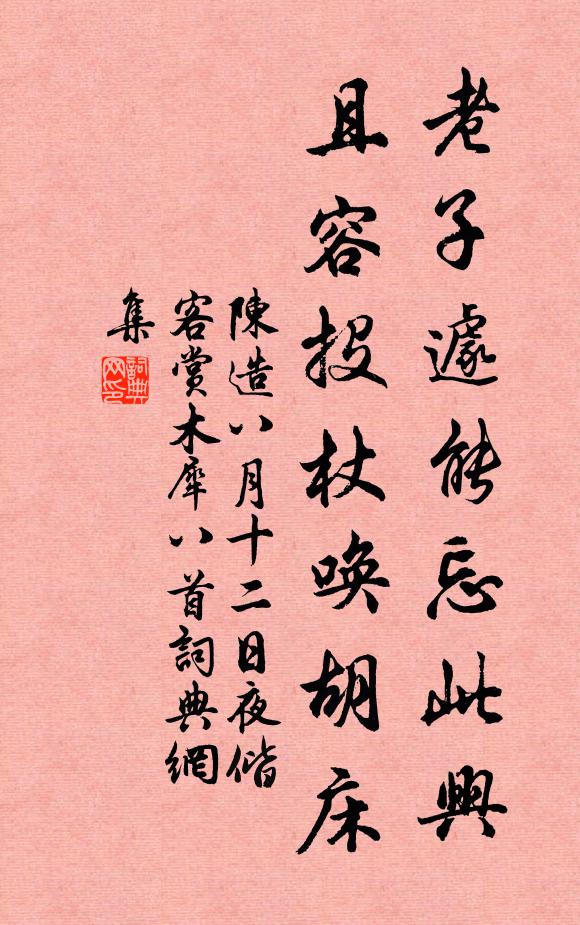 老子遽能忘此興
且容投杖喚胡床
陳造八月十二日夜偕
客賞木犀八首詞典網
集
詞典
网印